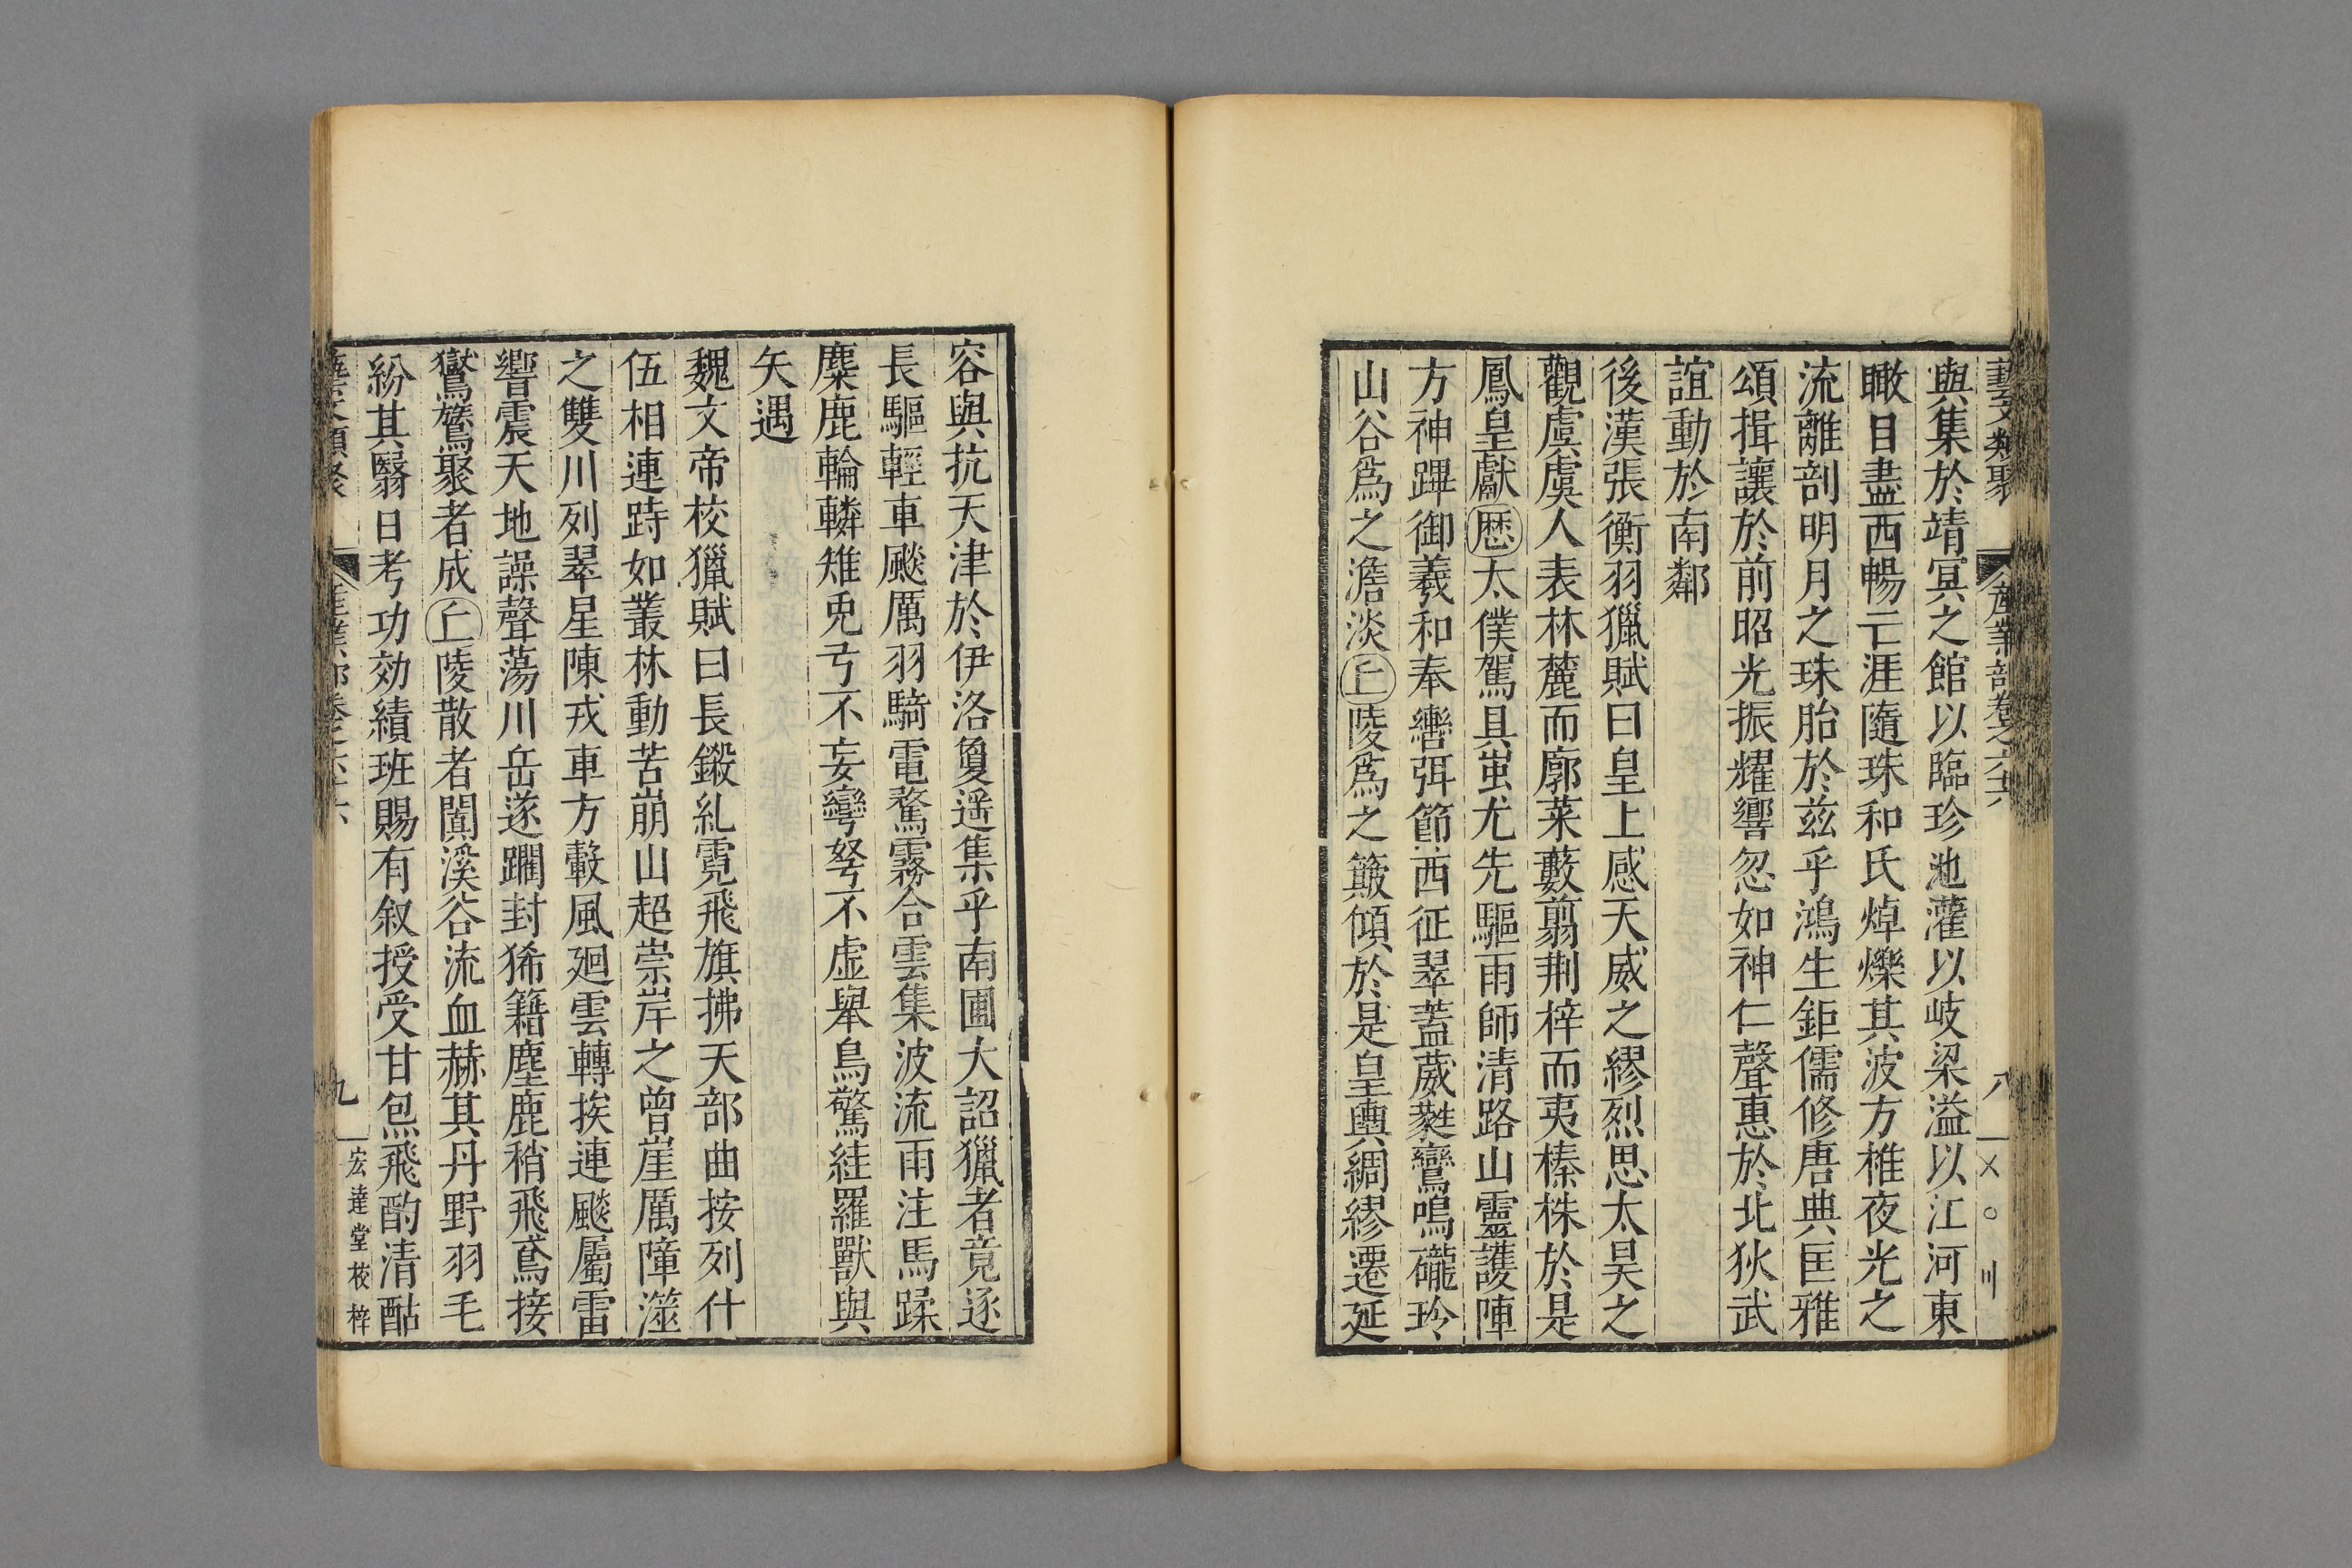 藝文類聚 產業部卷之六十六 八
與集於靖冥之館以臨珍池灌以岐梁溢以江河東
瞰目盡西暢亡涯隨珠和氏焯爍其波方椎夜光之
流離剖明月之珠胎於兹乎鴻生鉅儒修唐典匡雅
頌揖讓於前昭光振燿響忽如神仁聲惠於北狄武
誼動於南鄰
後漢張衡羽獵賦曰皇上感天威之繆烈思太昊之
觀虞虞人表林麓而廓萊藪翦荆梓而夷榛株於是
鳳皇獻歷太僕駕具蚩尤先驅雨師清路山靈護陣
方神蹕御羲和奉轡弭節西征翠蓋葳蕤鸞鳴礲玲
山谷爲之澹淡丘陵爲之簸傾於是皇輿綢繆遷延
容與抗天津於伊洛敻遥集乎南圃大詔獵者竟逐
長驅輕車飈厲羽騎電騖霧合雲集波流雨注馬蹂
麋鹿輪轔雉兎弓不妄彎弩不虚舉鳥驚絓羅獸與
矢遇
魏文帝校獵賦曰長鎩糺霓飛旗拂天部曲按列什
伍相連跱如叢林動苦崩山超崇岸之曾崖厲障澨
之雙川列翠星陳戎車方轂風廻雲轉挨連飈屬雷
響震天地譟聲蕩川岳遂躙封狶籍麈鹿稍飛鳶接
鸑鷟聚者成丘陵散者闐溪谷流血赫其丹野羽毛
紛其翳日考功効績班賜有叙授受甘炰飛酌清酤
藝文類聚 產業部卷之六十六 九 宏達堂校梓